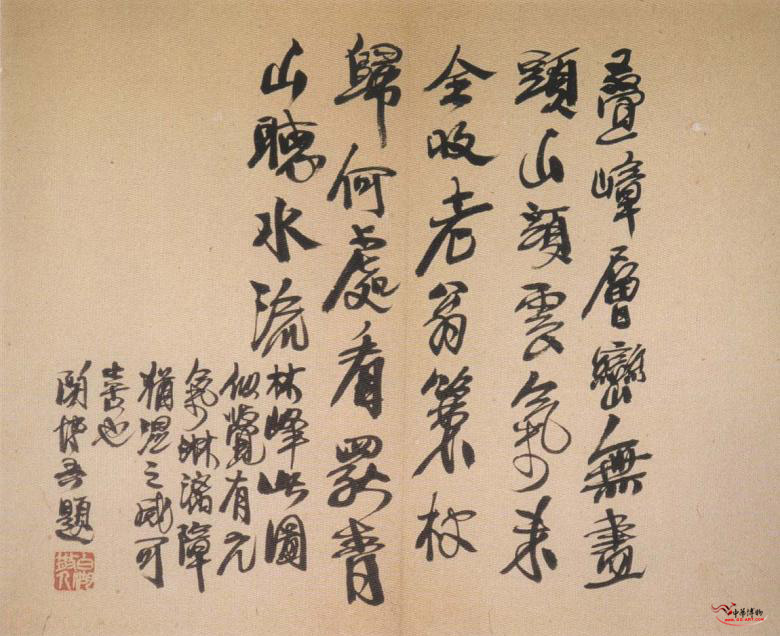 疊嶂層巒無盡
頭山頭雲氣未
全收老翁策杖
歸何處看罷青
山聽水流
林峰此圖
似覺有元
氣淋漓障
猶濕之感可
喜也
吾題
中華博物
www.gg-art.com